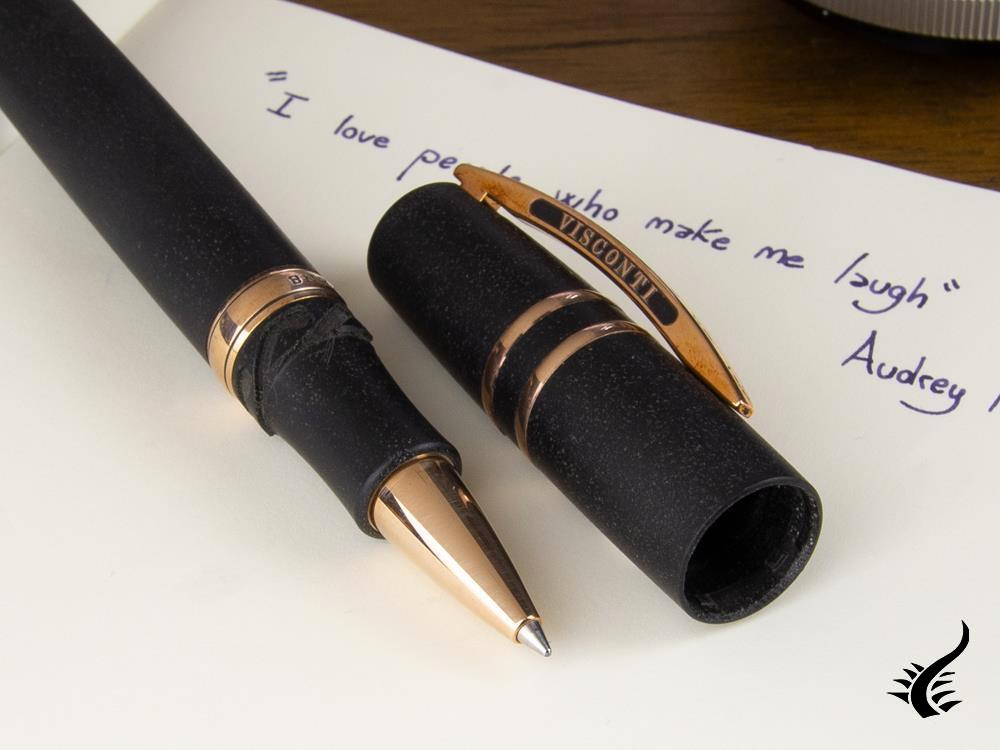 "I love people who make me laugh"
Audrey
VISCONTI